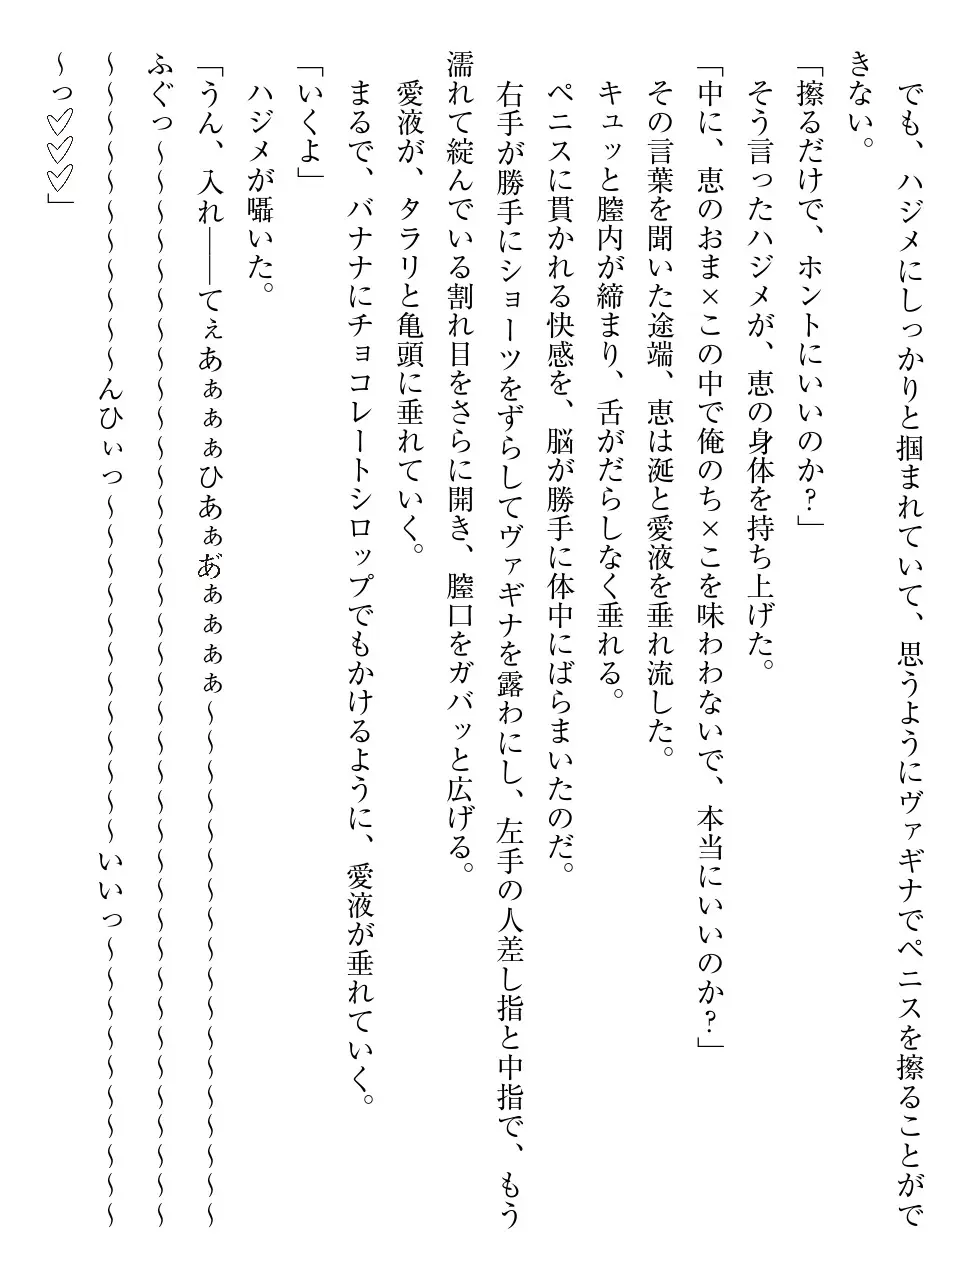 でも、ハジメにしっかりと掴まれていて、思うようにヴァギナでペニスを擦ることがで
きない。
「擦るだけで、ホントにいいのか?」
そう言ったハジメが、恵の身体を持ち上げた。
「中に、恵のおま×この中で俺のち×こを味わわないで、本当にいいのか?」
その言葉を聞いた途端、恵は涎と愛液を垂れ流した。
キュッと膣内が締まり、舌がだらしなく垂れる。
ペニスに貫かれる快感を、脳が勝手に体中にばらまいたのだ。
右手が勝手にショーツをずらしてヴァギナを露わにし、左手の人差し指と中指で、もう
濡れて綻んでいる割れ目をさらに開き、膣口をガバッと広げる。
愛液が、タラリと亀頭に垂れていく。
まるで、バナナにチョコレートシロップでもかけるように、愛液が垂れていく。
「いくよ」
ハジメが囁いた。
「うん、入れ――てぇあぁぁぁひあぁあ゙ぁぁぁぁ～～～～～～～～～～～～～～～～～～
ふぐっ～～～～～～～～～～～～～～～～～～～～～～～～～～～～～～～～～～～～～
～～～～～～～～～～～んひぃっ～～～～～～～～～～～～いいっ～～～～～～～～～～
～っ♡♡♡」